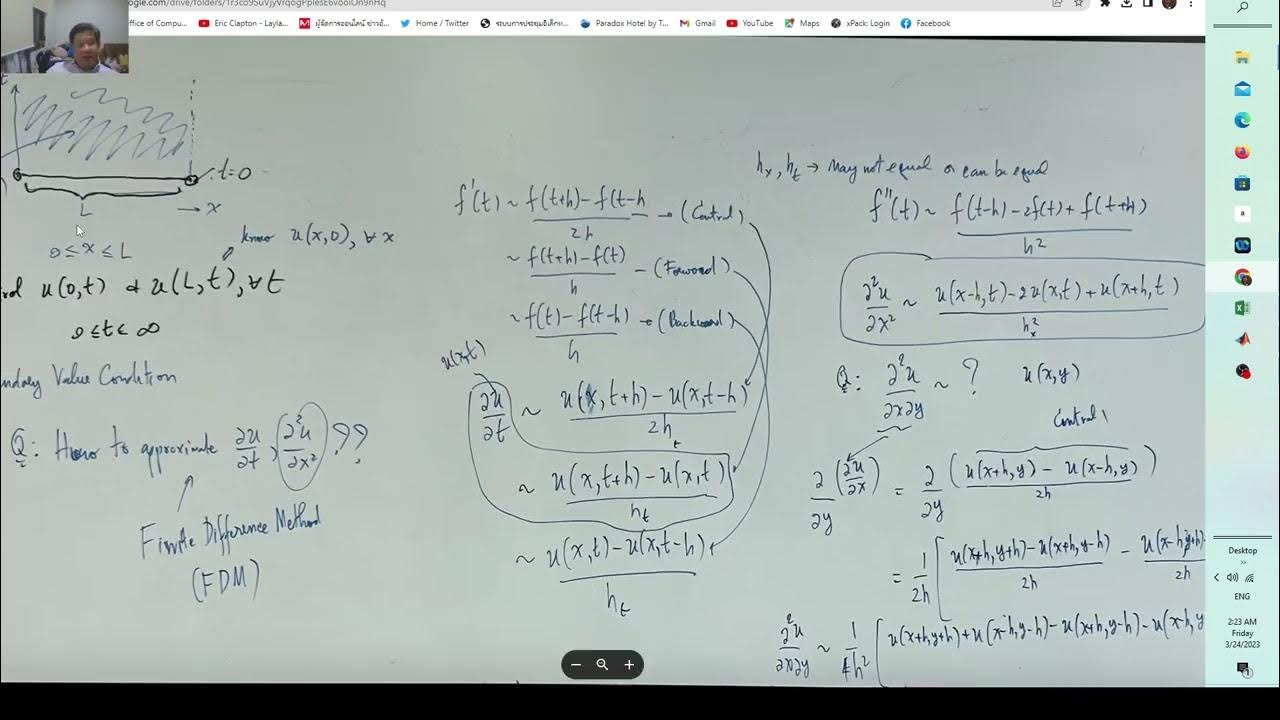 oogle.com/drive/folders/1r3co9SuVjyVrqogPplesE6vooiOn9nHq
ffice of Compu...
Eric Clapton - Layla...
ผู้จัดการออนไลน์ ข่าวอั...
Home / Twitter
ระบบการประชุมอิเล็กท...
Paradox Hotel by T...
Gmail
YouTube
Maps
xPack: Login
Facebook
t=0
L
→ x
0 ≤ x ≤ L
know u(x,0), ∀x
u(0,t) & u(L,t), ∀t
0 ≤ t < ∞
ndary Value Condition
Q: How to approximate ∂u/∂t, ∂²u/∂x² ??
Finite Difference Method
(FDM)
f'(t) ~ f(t+h) - f(t-h / 2h → (Central)
~ f(t+h) - f(t) / h - (Forward)
~ f(t) - f(t-h) / h → (Backward)
u(x,t)
∂u/∂t ~ u(x,t+h) - u(x,t-h) / 2h_t
~ u(x,t+h) - u(x,t) / h_t
~ u(x,t) - u(x,t-h) / h_t
h_x, h_t → may not equal or can be equal
f''(t) ~ f(t-h) - 2f(t) + f(t+h) / h²
∂²u/∂x² ~ u(x-h,t) - 2u(x,t) + u(x+h,t) / h_x²
Q: ∂²u/∂x∂y ~ ? u(x,y)
Central
∂/∂y (∂u/∂x) = ∂/∂y (u(x+h,y) - u(x-h,y) / 2h)
= 1/2h [u(x+h,y+h) - u(x+h,y-h) / 2h - u(x-h,y+h) / 2h
∂²u/∂x∂y ~ 1/4h² [u(x+h,y+h) + u(x-h,y-h) - u(x+h,y-h) - u(x-h,y
Desktop
ENG
2:23 AM
Friday
3/24/2023